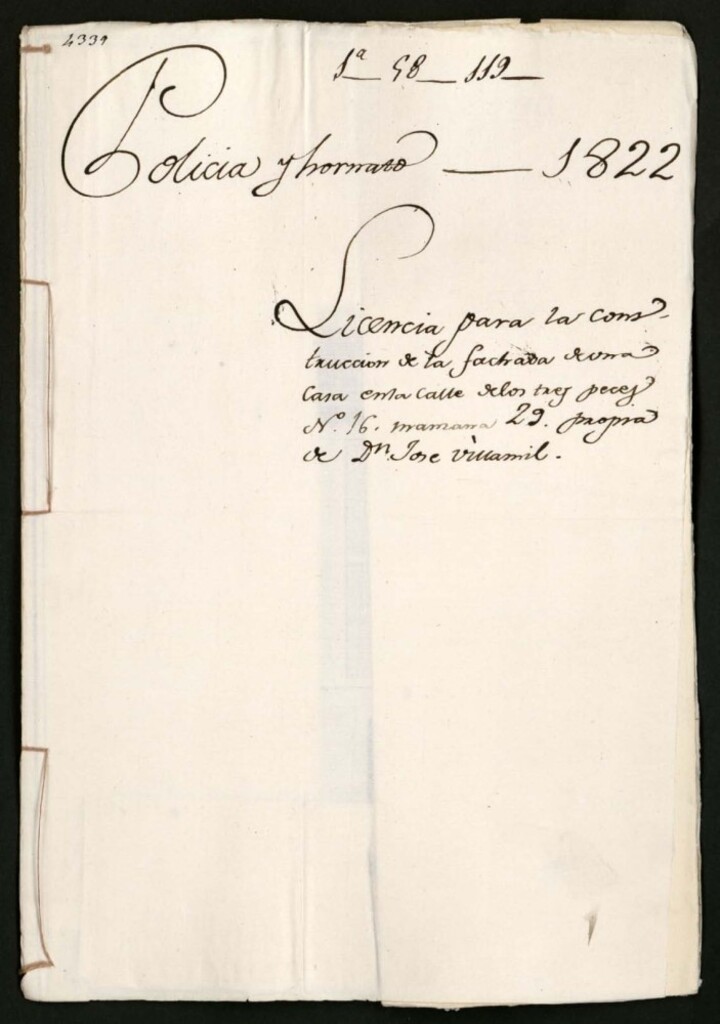 4339
1ª 58 119
Policia y hornato 1822
Licencia para la cons-
truccion de la fachada de una
Casa en la Calle de los tres peces
Nº. 16. manzana 29. propia
de Dn. Jose Villamil.